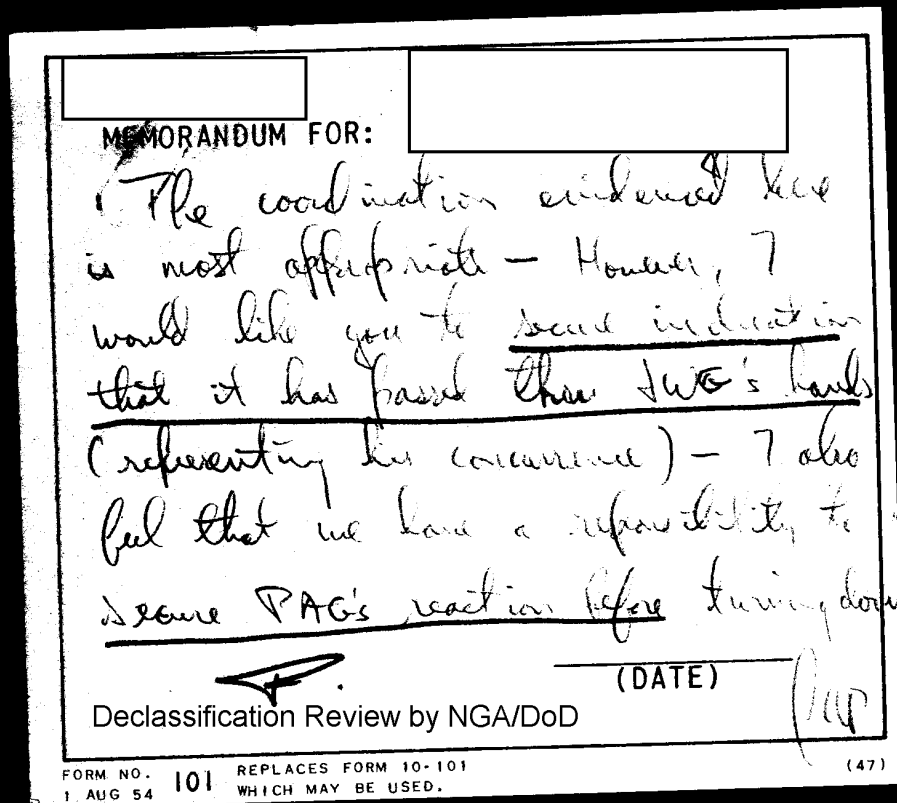 MEMORANDUM FOR:
The coordination evidenced here
is most appropriate — However, I
would like you to secure indication
that it has passed thru JWG's hands
(representing his concurrence) — I also
feel that we have a responsibility to
secure PAG's reaction before turning down
(DATE)
Declassification Review by NGA/DoD
FORM NO. 101 REPLACES FORM 10-101 (47)
1 AUG 54 WHICH MAY BE USED.